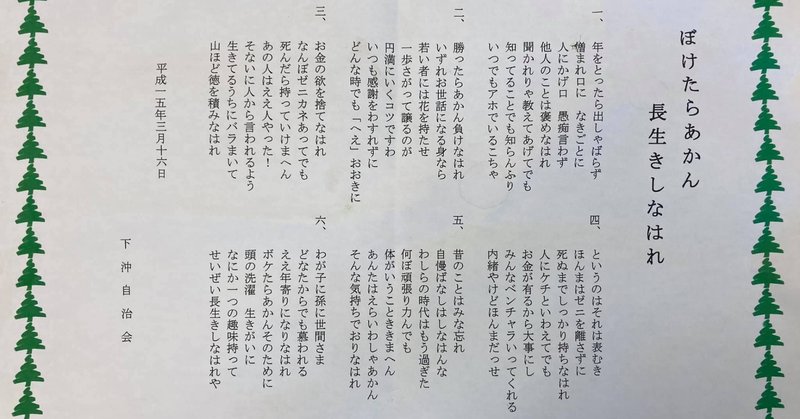 ぼけたらあかん
長生きしなはれ
一、年をとったら出しゃばらず
憎まれ口に　なきごとに
人にかげ口　愚痴言わず
他人のことは褒めなはれ
聞かれりゃ教えてあげてでも
知ってることでも知らんふり
いつでもアホでいるこちゃ
二、勝ったらあかん負けなはれ
いずれお世話になる身なら
若い者には花を持たせ
一歩さがって譲るのが
円満にいくコツですわ
いつも感謝をわすれずに
どんな時でも「へえ」おおきに
三、お金の欲を捨てなはれ
なんぼゼニカネあってでも
死んだら持っていけまへん
あの人はええ人やった！
そないに人から言われるよう
生きてるうちにバラまいて
山ほど徳を積みなはれ
平成一五年三月十六日
四、というのはそれは表むき
ほんまはゼニを離さずに
死ぬまでしっかり持ちなはれ
人にケチといわえてでも
お金が有るから大事にし
みんなベンチャラいってくれる
内緒やけどほんまだっせ
五、昔のことはみな忘れ
自慢ばなしはしなはんな
わしらの時代はもう過ぎた
何ぼ頑張り力んでも
体がいうこときまへん
あんたはえらいわしゃあかん
そんな気持ちでおりなはれ
六、わが子に孫に世間さま
どなたからでも慕われる
ええ年寄りになりなはれ
ボケたらあかんそのために
頭の洗濯　生きがいに
なにか一つの趣味持って
せいぜい長生きしなはれや
下沖自治会